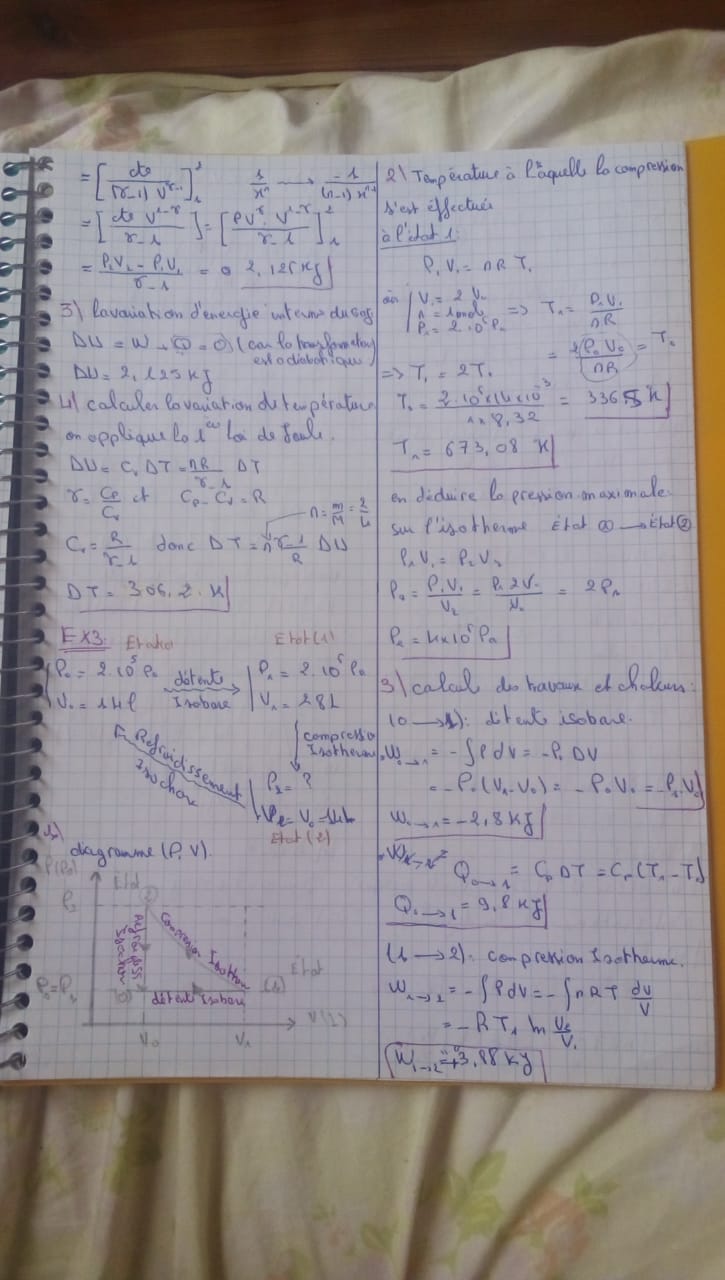 = [cte / (γ-1) V^γ-1]₁²    1/xⁿ → -1/(n-1)xⁿ⁻¹
= [cte V^1-γ / γ-1] = [PV^γ V^1-γ / γ-1]₁²
= P₂V₂ - P₁V₁ / γ-1 = 2,125 KJ
3) la variation d'énergie interne du gaz
DU = W + Q = 0 (car la transformation
est adiabatique)
DU = 2,125 KJ
4) calculer la variation de température
on applique la 1ère loi de Joule.
DU = Cv DT = nR/γ-1 DT
γ = Cp/Cv et Cp - Cv = R
n = m/M = 2/4
Cv = R/γ-1 donc DT = γ-1/nR DU
DT = 306,2 K
EX3:
Etat(1)
P₀ = 2.10⁵ Pa    détente    P₁ = 2.10⁵ Pa
V₀ = 14 l    Isobare    V₁ = 28 L
compression
Isotherme
Refroidissement
Isochore
P₂ = ?
V₂ = V₀ = 14 L
Etat (2)
diagramme (P, V).
P(Pa)
Etat
P₂
Compression Isotherme
Refroidiss
Isochore
Etat
P₀=P₁    (0)    détente Isobare    (1)
V₀    V₁    V(L)
2) Température à laquelle la compression
s'est effectuée
à l'état 1:
P₁ V₁ = nR T₁
où V₁ = 2 V₀
n = 1 mol    => T₁ = P₁V₁/nR
P₁ = 2.10⁵ Pa
= 2 P₀ V₀/nR = T₀
=> T₁ = 2T₀
T₀ = 2.10⁵ x 14 x 10⁻³ / 1 x 8,32 = 336,5 K
T₁ = 673,08 K
en déduire la pression maximale.
sur l'isotherme Etat ① → Etat ②
P₁ V₁ = P₂ V₂
P₂ = P₁V₁/V₂ = P₁ 2V₀/V₀ = 2P₁
P₂ = 4x10⁵ Pa
3) calcul des travaux et chaleurs:
(0 → 1): détente isobare.
W₀→₁ = -∫P dV = -P₀ DV
= -P₀(V₁-V₀) = -P₀V₀ = -P₀V₀
W₀→₁ = -2,8 KJ
Q₀→₁ = Cp DT = Cp (T₁ - T₀)
Q₀→₁ = 9,8 KJ
(1 → 2): compression Isotherme.
W₁→₂ = -∫P dV = -∫nRT dV/V
= -RT₁ ln V₂/V₁
W₁→₂ = +3,88 KJ